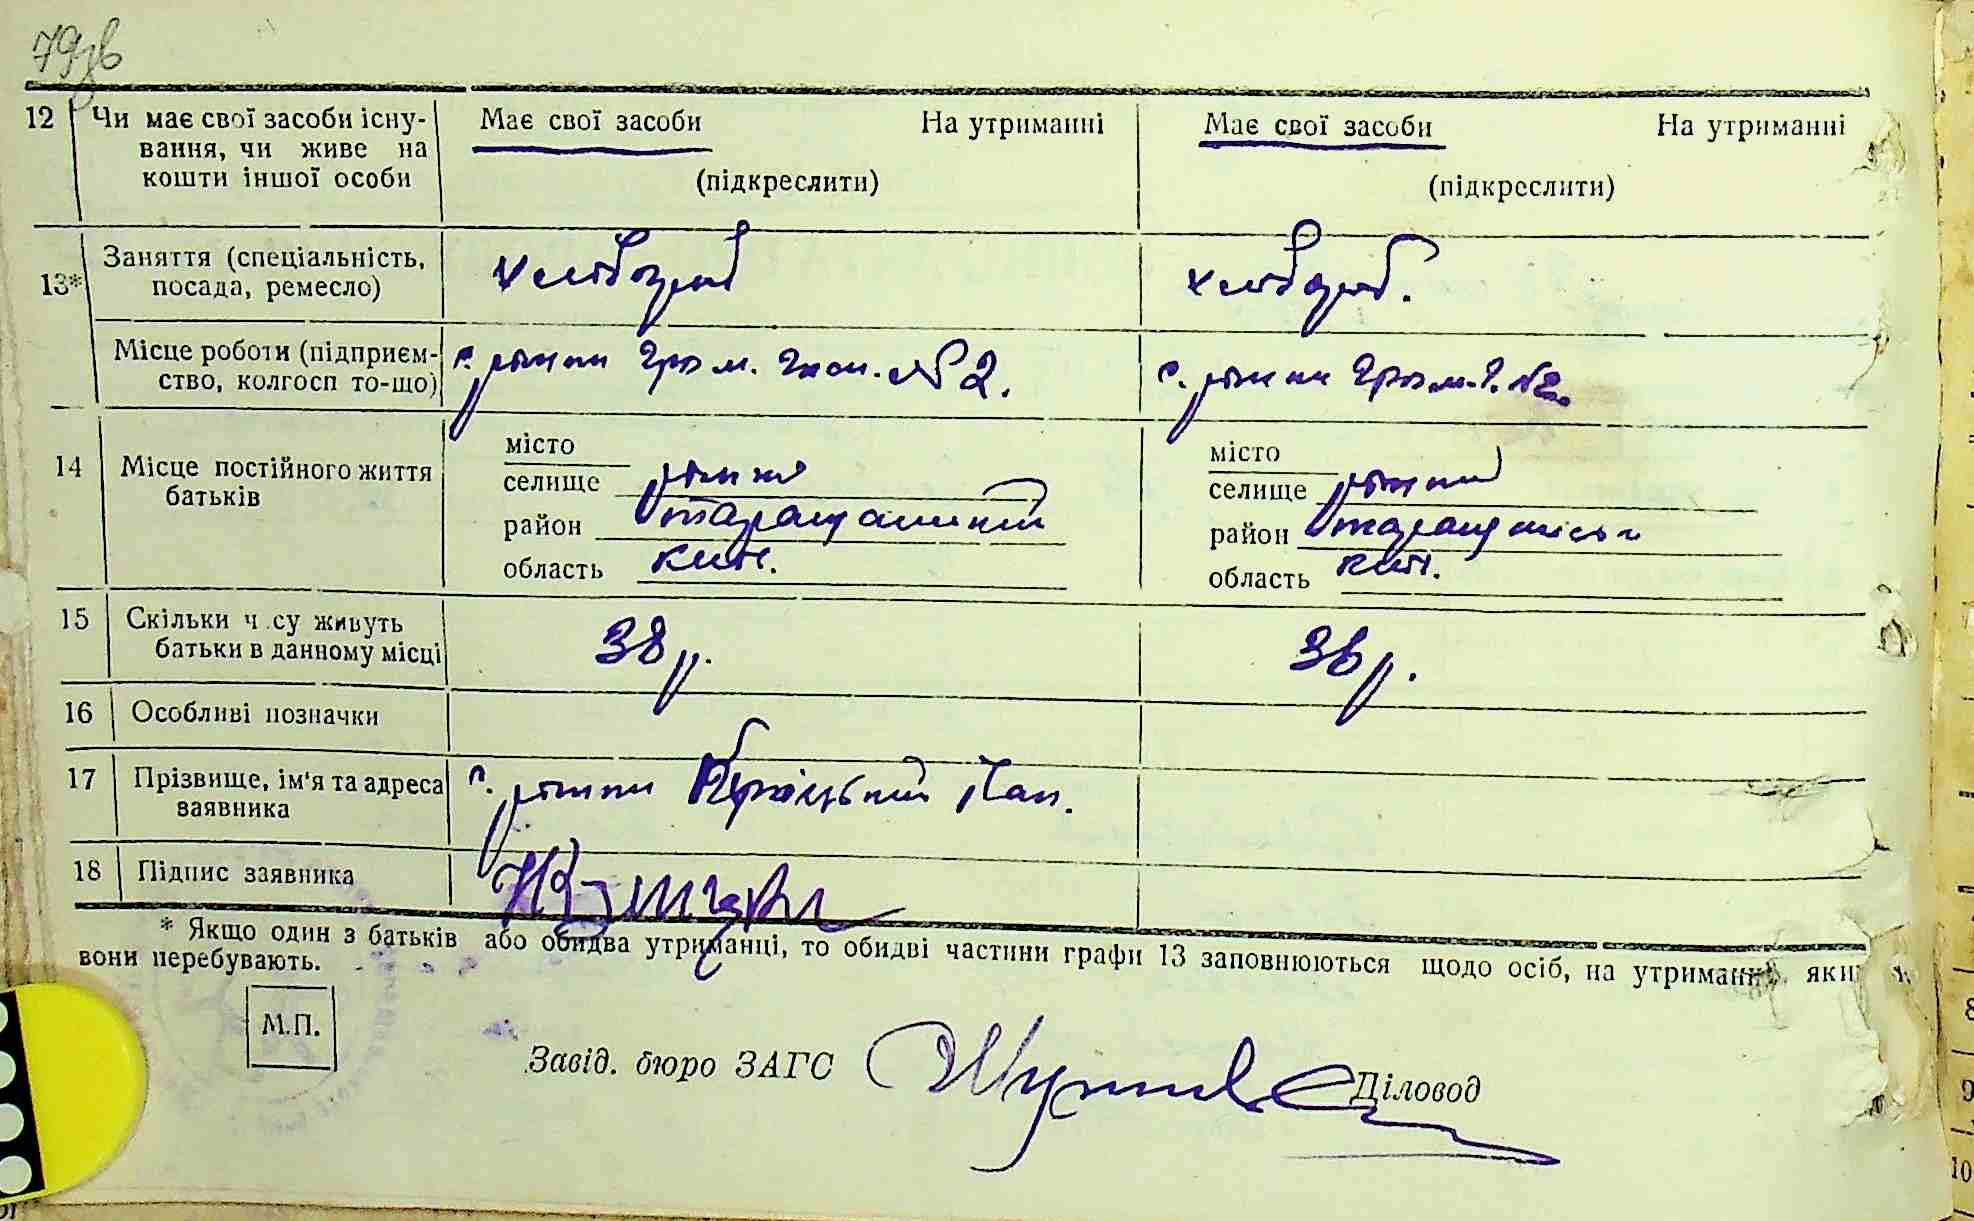 79зв
12 Чи має свої засоби існу- Має свої засоби На утриманні Має свої засоби На утриманні
вання, чи живе на
кошти іншої особи (підкреслити) (підкреслити)
13* Заняття (спеціальність, хлібороб хлібороб.
посада, ремесло)
Місце роботи (підприєм- с. Ріжки Гром. №2. с. Ріжки Гром. №2.
ство, колгосп то-що)
14 Місце постійного життя місто місто
батьків селище Ріжки селище Ріжки
район Таращанський район Таращанськи
область Київ. область Київ.
15 Скільки ч су живуть 38 р. 36 р.
батьки в данному місці
16 Особливі позначки
17 Прізвище, ім'я та адреса с. Ріжки
заявника
18 Підпис заявника
* Якщо один з батьків або обидва утриманці, то обидві частини графи 13 заповнюються щодо осіб, на утриманні яки
вони перебувають.
М.П.
Завід. бюро ЗАГС Діловод
8
9
10